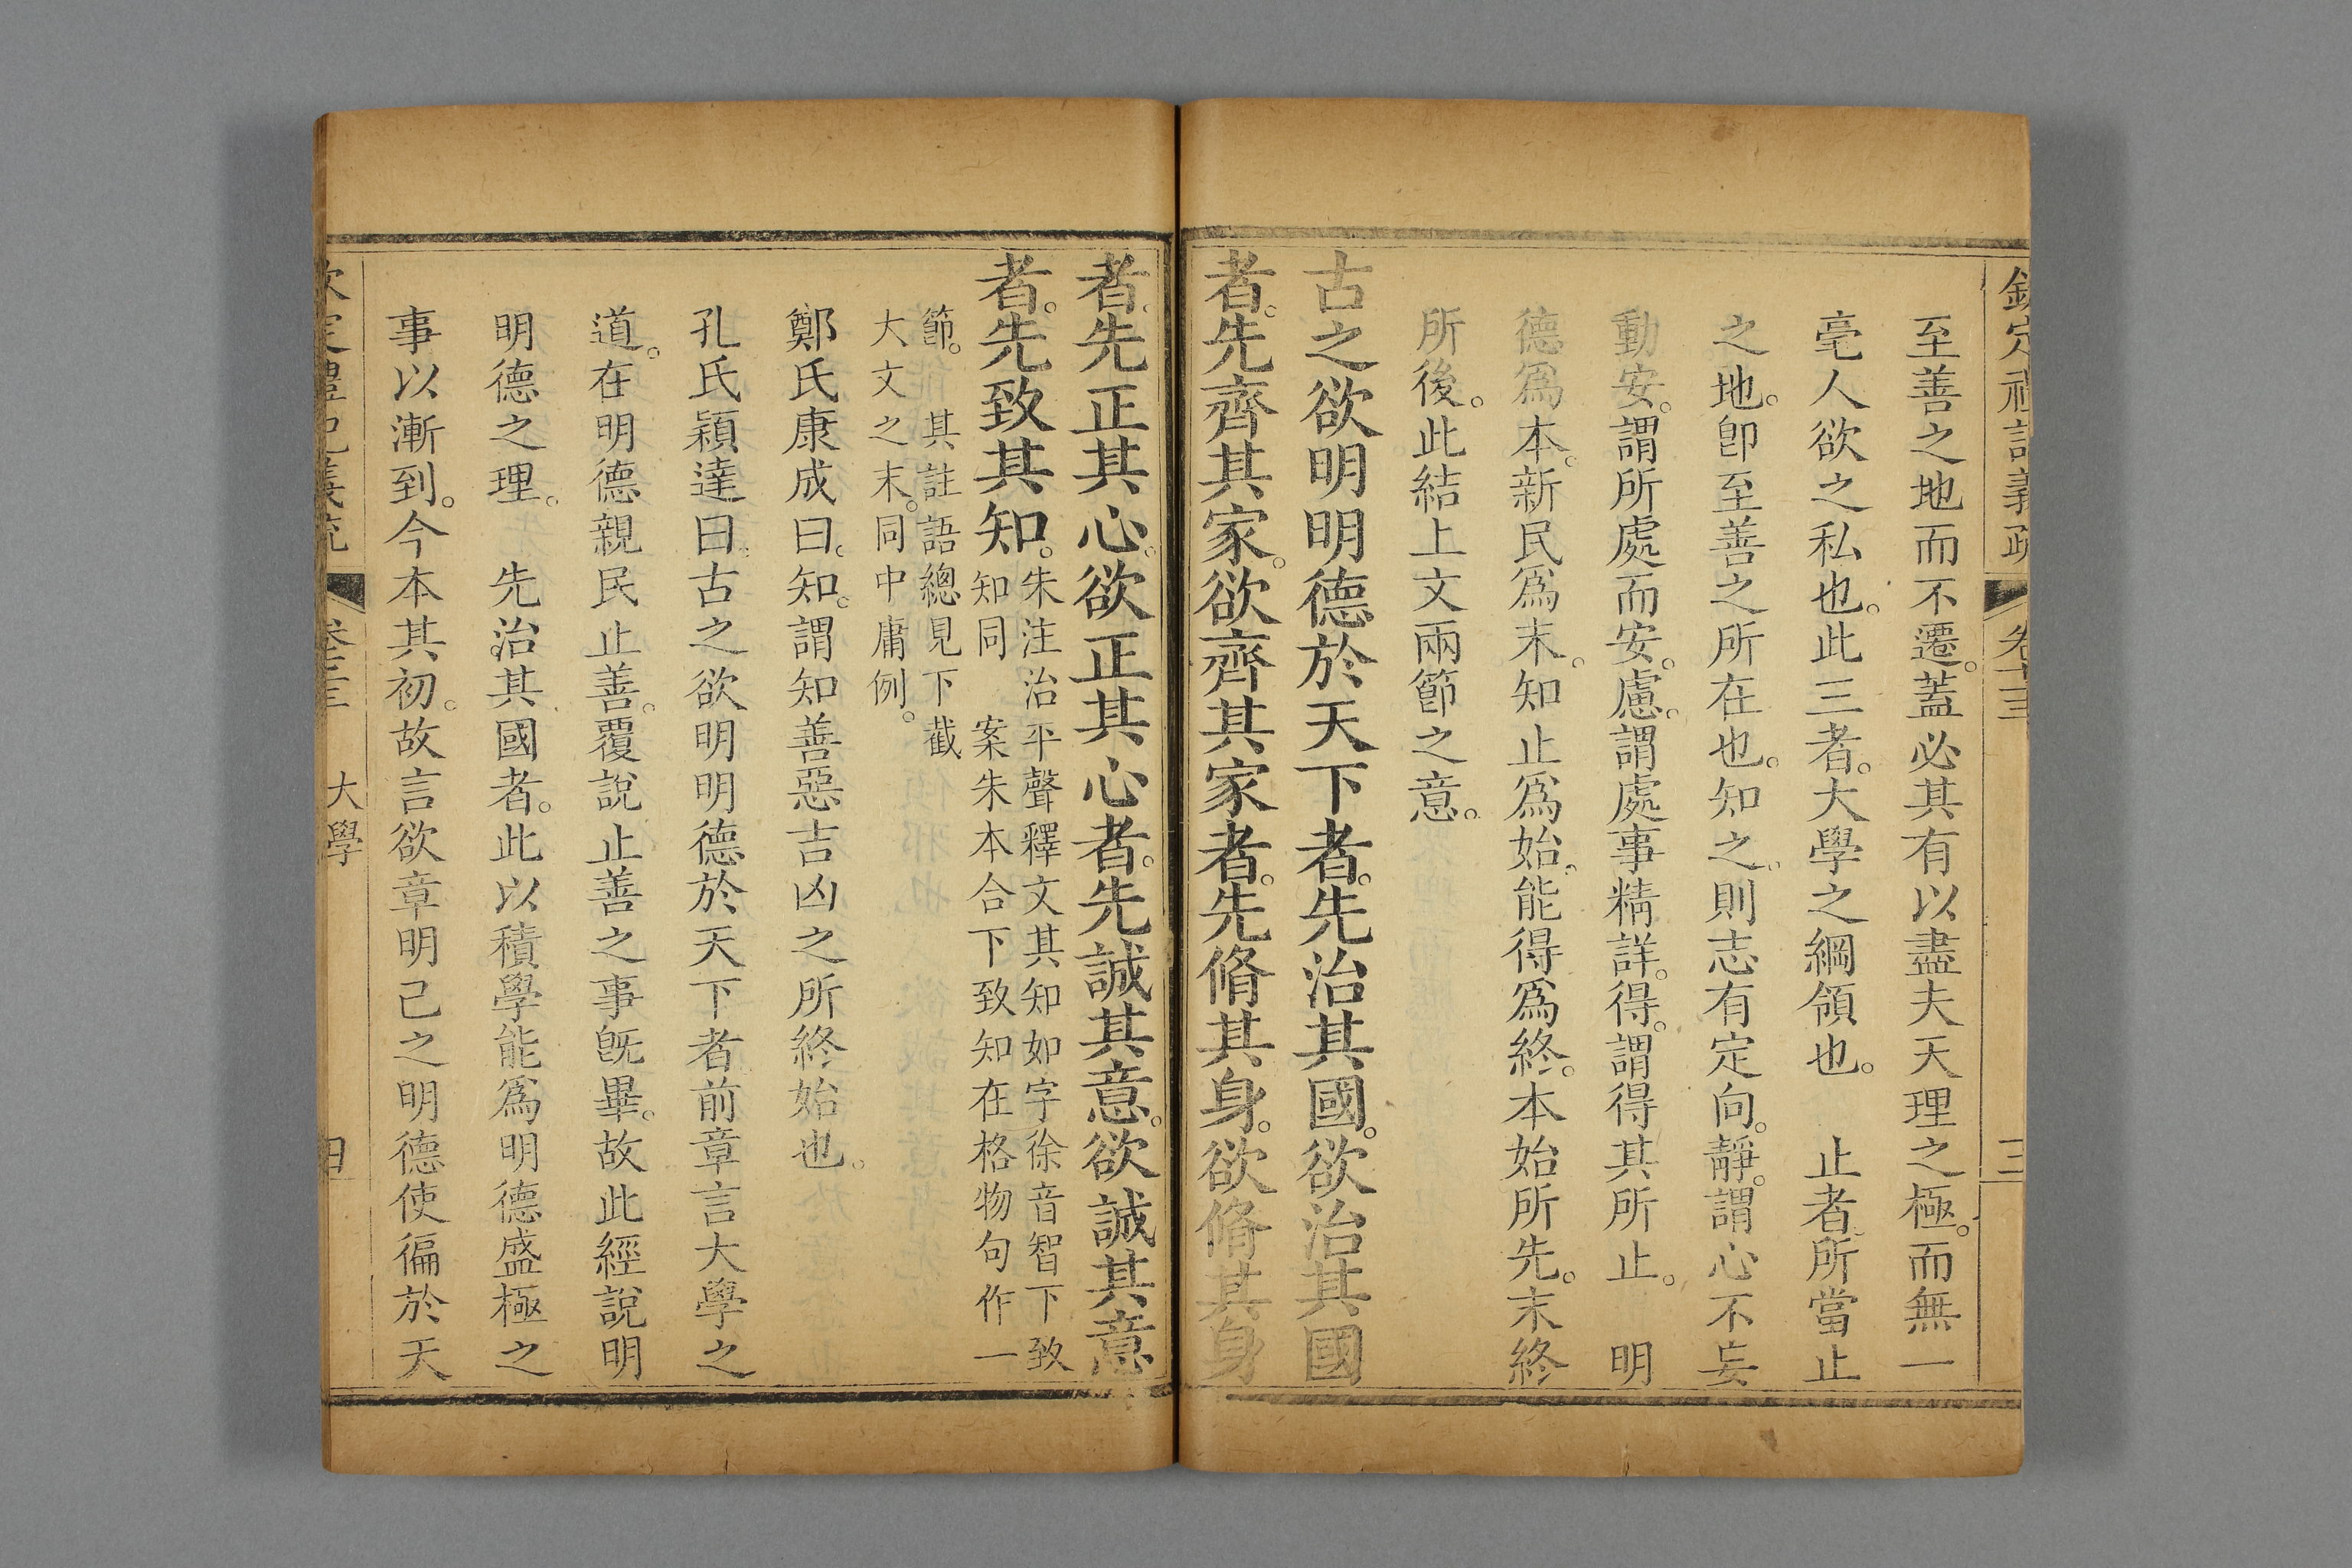 欽定禮記義疏 卷七十三 三
至善之地而不遷。蓋必其有以盡夫天理之極。而無一
毫人欲之私也。此三者。大學之綱領也。 止者。所當止
之地。卽至善之所在也。知之。則志有定向。靜。謂心不妄
動。安。謂所處而安。慮。謂處事精詳。得。謂得其所止。 明
德爲本。新民爲末。知止爲始。能得爲終。本始所先。末終
所後。此結上文兩節之意。
古之欲明明德於天下者。先治其國。欲治其國
者。先齊其家。欲齊其家者。先脩其身。欲脩其身
者。先正其心。欲正其心者。先誠其意。欲誠其意
者。先致其知。
朱注治平聲釋文其知如字徐音智下致
知同 案朱本合下致知在格物句作一
節。 其註語總見下截
大文之末。同中庸例。
鄭氏康成曰。知。謂知善惡吉凶之所終始也。
孔氏穎達曰。古之欲明明德於天下者前章言大學之
道。在明德親民止善。覆說止善之事旣畢。故此經說明
明德之理。 先治其國者。此以積學能爲明德盛極之
事以漸到。今本其初。故言欲章明己之明德使徧於天
欽定禮記義疏 大學 四